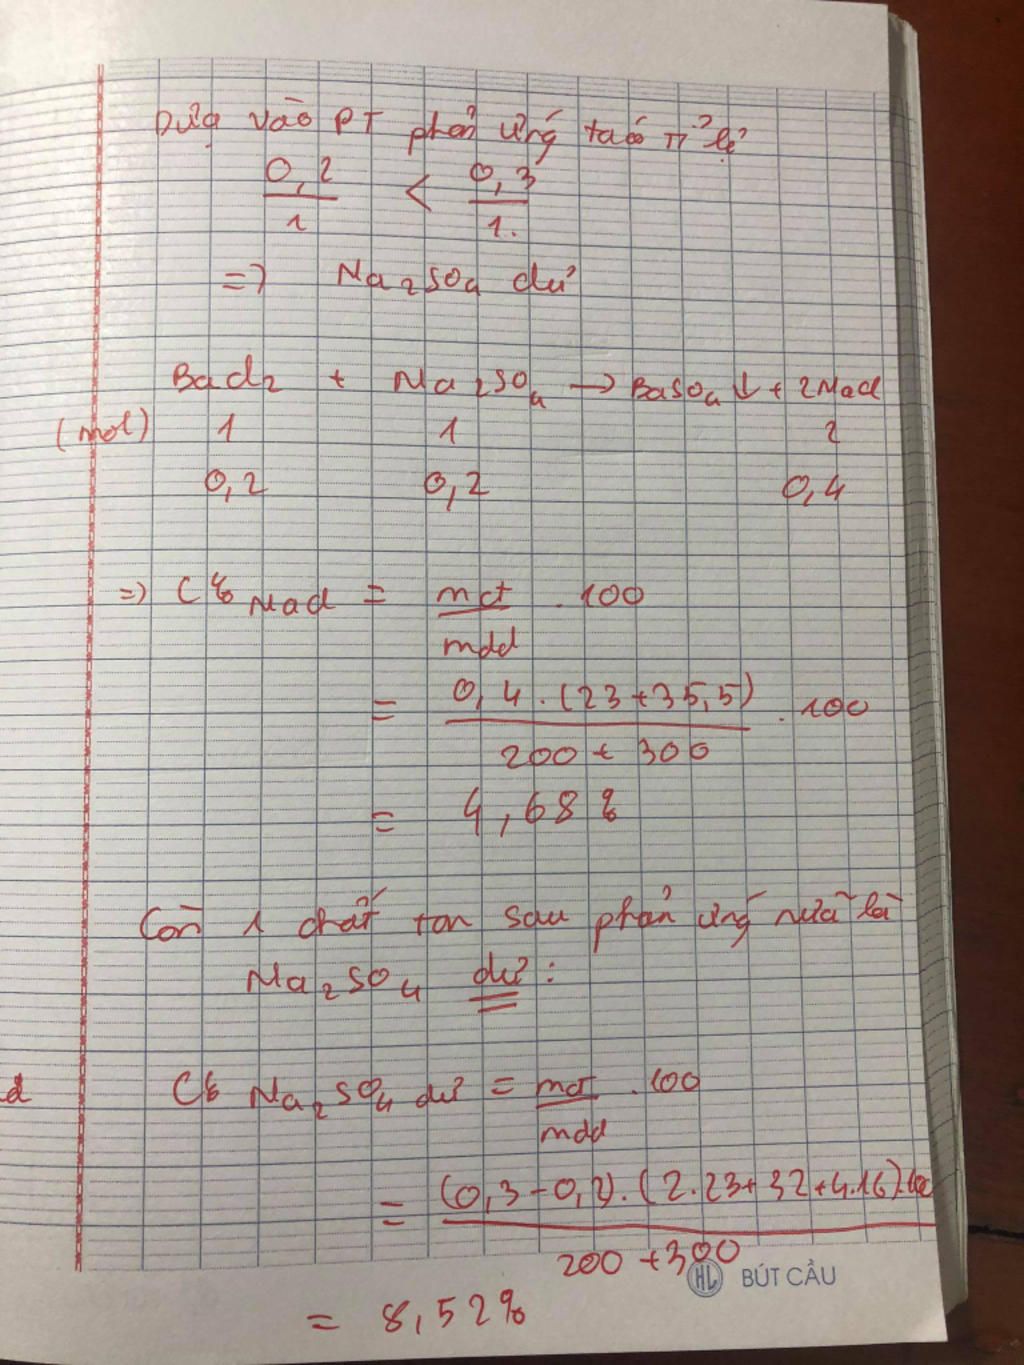 Dựa vào PT phản ứng ta có tỉ lệ
0,2 < 0,3
1 1.
=> Na2SO4 dư
BaCl2 + Na2SO4 → BaSO4 ↓ + 2NaCl
(mol) 1 1 2
0,2 0,2 0,4
=> C% NaCl = mct . 100
mdd
= 0,4 . (23 + 35,5) . 100
200 + 300
= 4,68 %
Còn 1 chất tan sau phản ứng nữa là
Na2SO4 dư :
C% Na2SO4 dư = mct . 100
mdd
= (0,3 - 0,2) . (2.23 + 32 + 4.16) . 100
200 + 300
HL BÚT CẦU
= 8,52%